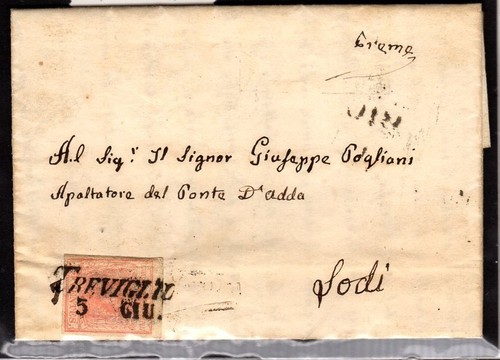 Crema
Al Sigr. Il Signor Giuseppe Pogliani
Apaltatore del Ponte D'adda
Lodi
TREVIGLIO
5 GIU.